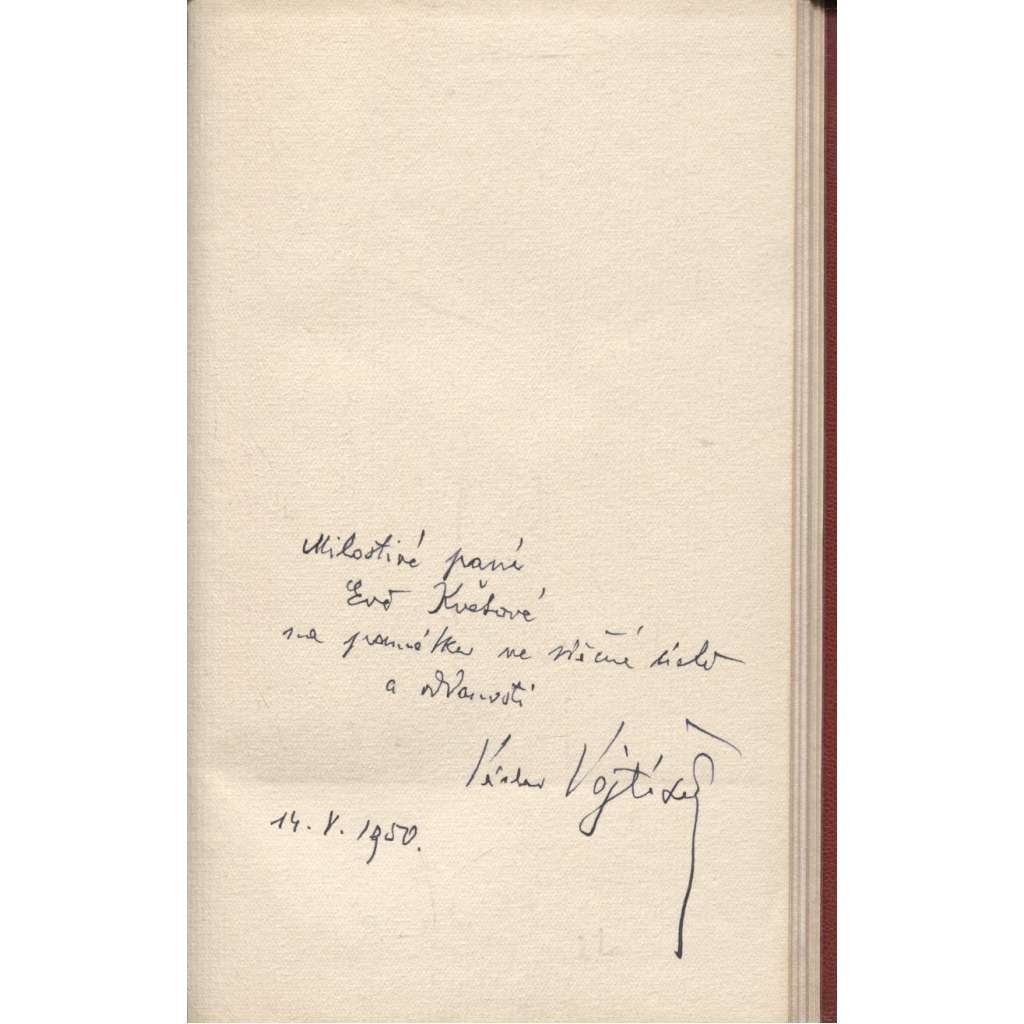 Milostivé paní
Evě Květové
na památku ve vděčné úctě
a oddanosti
Václav Vojtíšek
14. V. 1950.